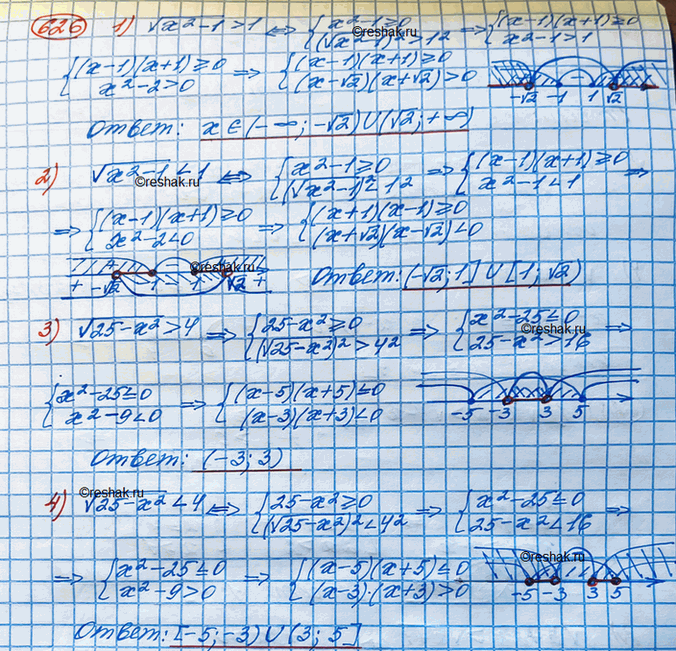 626 1) √x²-1 > 1 ⇔ {x²-1≥0 (√x²-1)²>1² ⇒ {(x-1)(x+1)≥0 x²-1>1
{(x-1)(x+1)≥0 x²-2>0 ⇒ {(x-1)(x+1)≥0 (x-√2)(x+√2)>0 -√2 -1 1 √2
Ответ: x∈(-∞;-√2)∪(√2;+∞)
2) √x²-1 < 1 ⇔ {x²-1≥0 (√x²-1)²<1² ⇒ {(x-1)(x+1)≥0 x²-1<1 ⇒
©reshak.ru
⇒ {(x-1)(x+1)≥0 x²-2<0 ⇒ {(x+1)(x-1)≥0 (x+√2)(x-√2)<0
©reshak.ru
+ -√2 -1 - 1 √2 + Ответ: (-√2;1]∪[1;√2)
3) √25-x² > 4 ⇒ {25-x²≥0 (√25-x²)²>4² ⇒ {x²-25≤0 25-x²>16 ⇒
©reshak.ru
{x²-25≤0 x²-9<0 ⇒ {(x-5)(x+5)≤0 (x-3)(x+3)<0 -5 -3 3 5
Ответ: (-3;3)
©reshak.ru
4) √25-x² < 4 ⇔ {25-x²≥0 (√25-x²)²<4² ⇒ {x²-25≤0 25-x²<16 ⇒
©reshak.ru
⇒ {x²-25≤0 x²-9>0 ⇒ {(x-5)(x+5)≤0 (x-3)·(x+3)>0 -5 -3 3 5
Ответ: [-5;-3)∪(3;5]